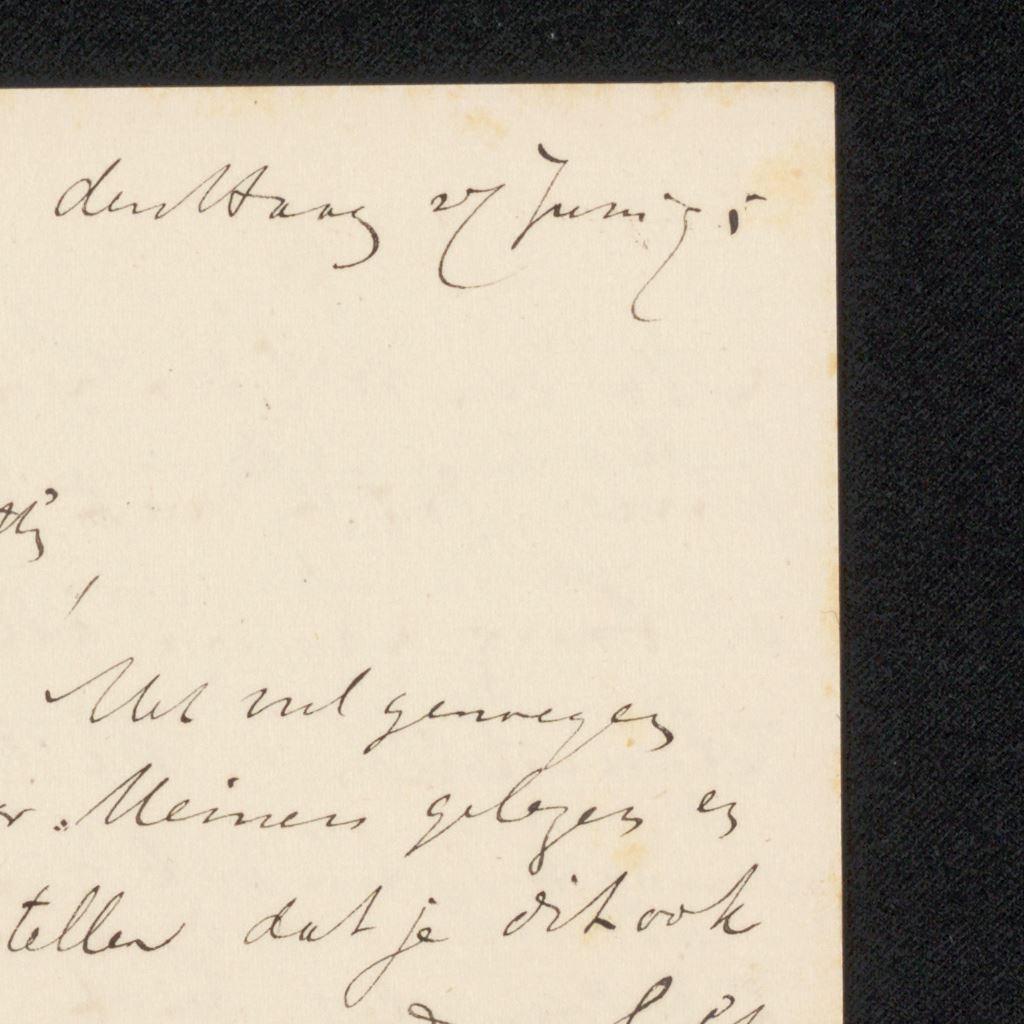 den Haag 27 Juni 95
Met veel genoegen
Meiners gelezen en
tellen dat je dit ook